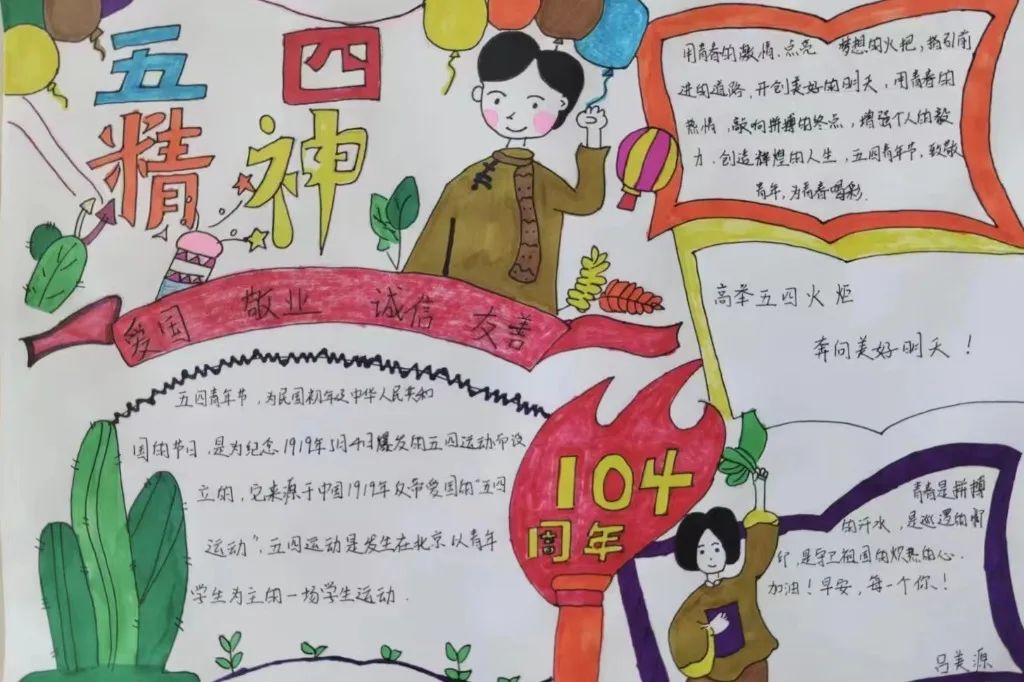 五 四
精 神
爱国 敬业 诚信 友善
用青春的激情、点亮 梦想的火把，指引前
进的道路，开创美好的明天，用青春的
热情，敲响拼搏的终点，增强个人的毅
力，创造辉煌的人生，五四青年节，致敬
青年，为青春喝彩.
高举五四火炬
奔向美好明天！
五四青年节，为民国初年及中华人民共和
国的节日，是为纪念1919年5月4日爆发的五四运动而设
立的，它来源于中国1919年反帝爱国的“五四
运动”，五四运动是发生在北京以青年
学生为主的一场学生运动.
104
周年
青春是拼搏
的汗水，是巡逻的脚
印，是守卫祖国的炽热的心.
加油！早安，每一个你！
吕美源